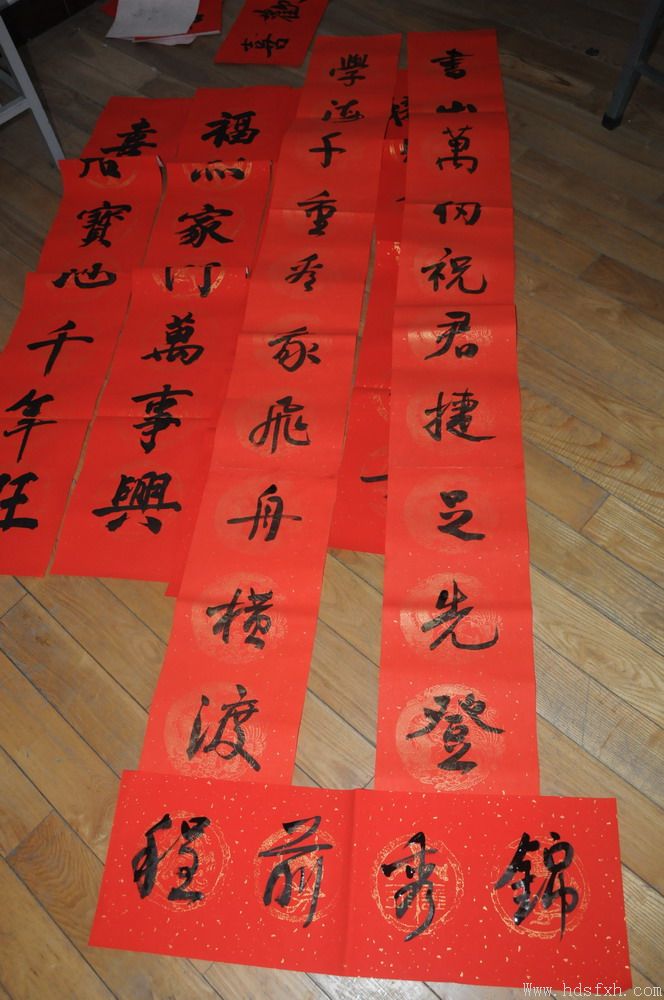 書山萬仞祝君捷足先登
學海千重看我飛舟橫渡
錦秀前程
福照家門萬事興
喜居寶地千年旺
喜
Www.hdsfxh.com